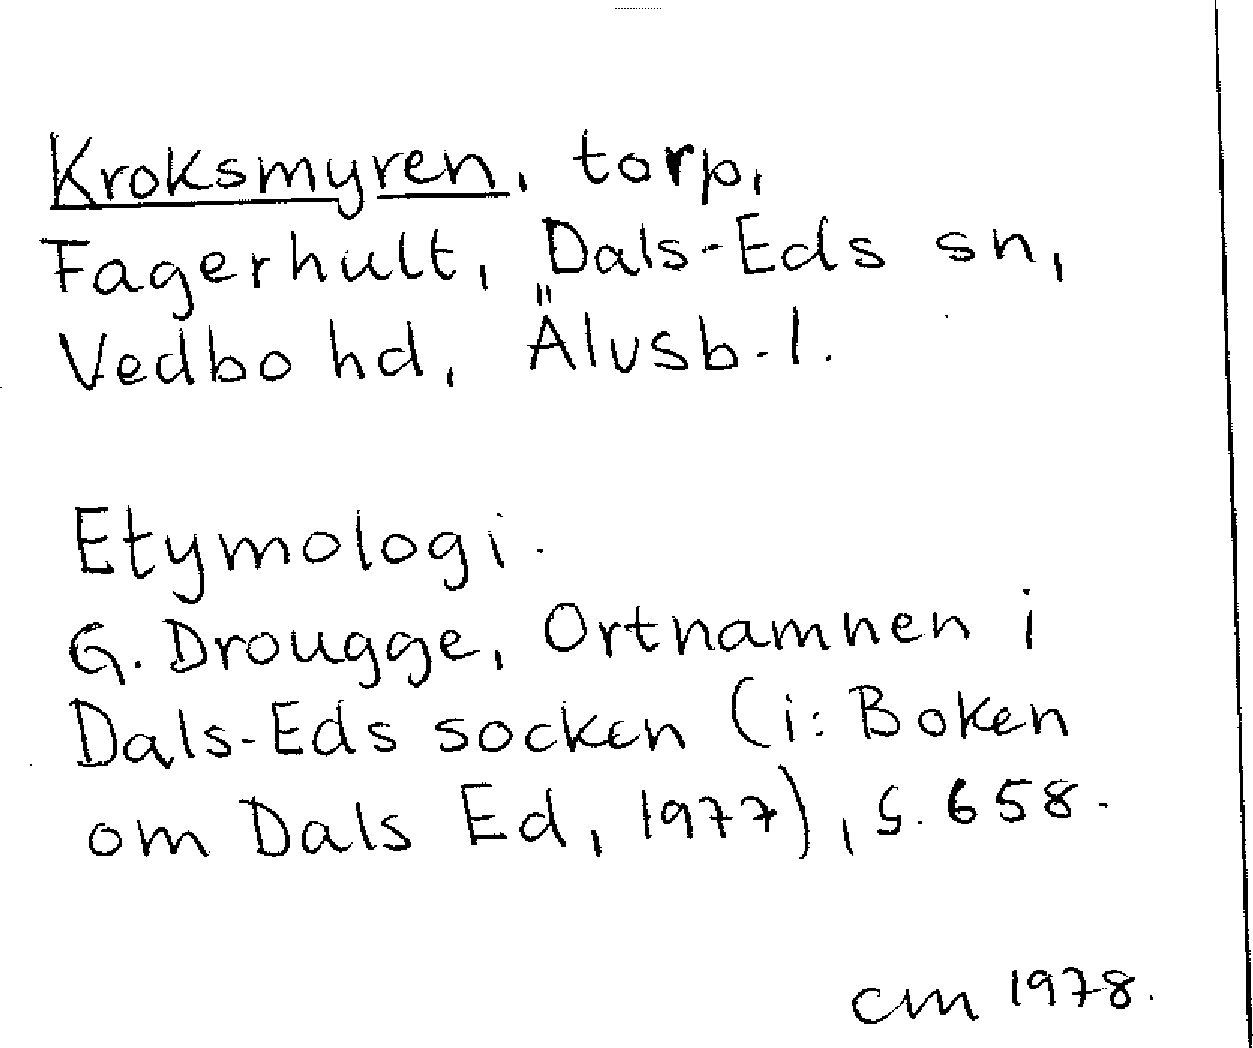 Kroksmyren, torp,
Fagerhult, Dals-Eds sn,
Vedbo hd, Älvsb.l.
Etymologi.
G. Drougge, Ortnamnen i
Dals-Eds socken (i: Boken
om Dals Ed, 1977), s. 658.
cm 1978.